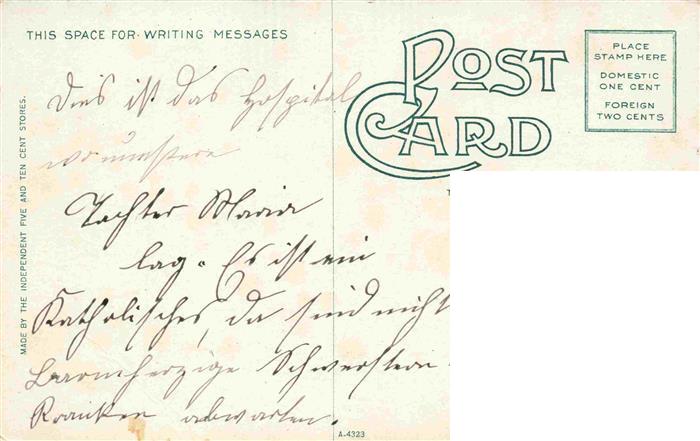 THIS SPACE FOR WRITING MESSAGES
POST
CARD
PLACE
STAMP HERE
DOMESTIC
ONE CENT
FOREIGN
TWO CENTS
MADE BY THE INDEPENDENT FIVE AND TEN CENT STORES.
Dies ist das Hospital
wo unsere
Tochter Maria
lag. Es ist ein
Katholisches, da sind nicht
Barmherzige Schwestern
Kranken abwarten.
A-4323